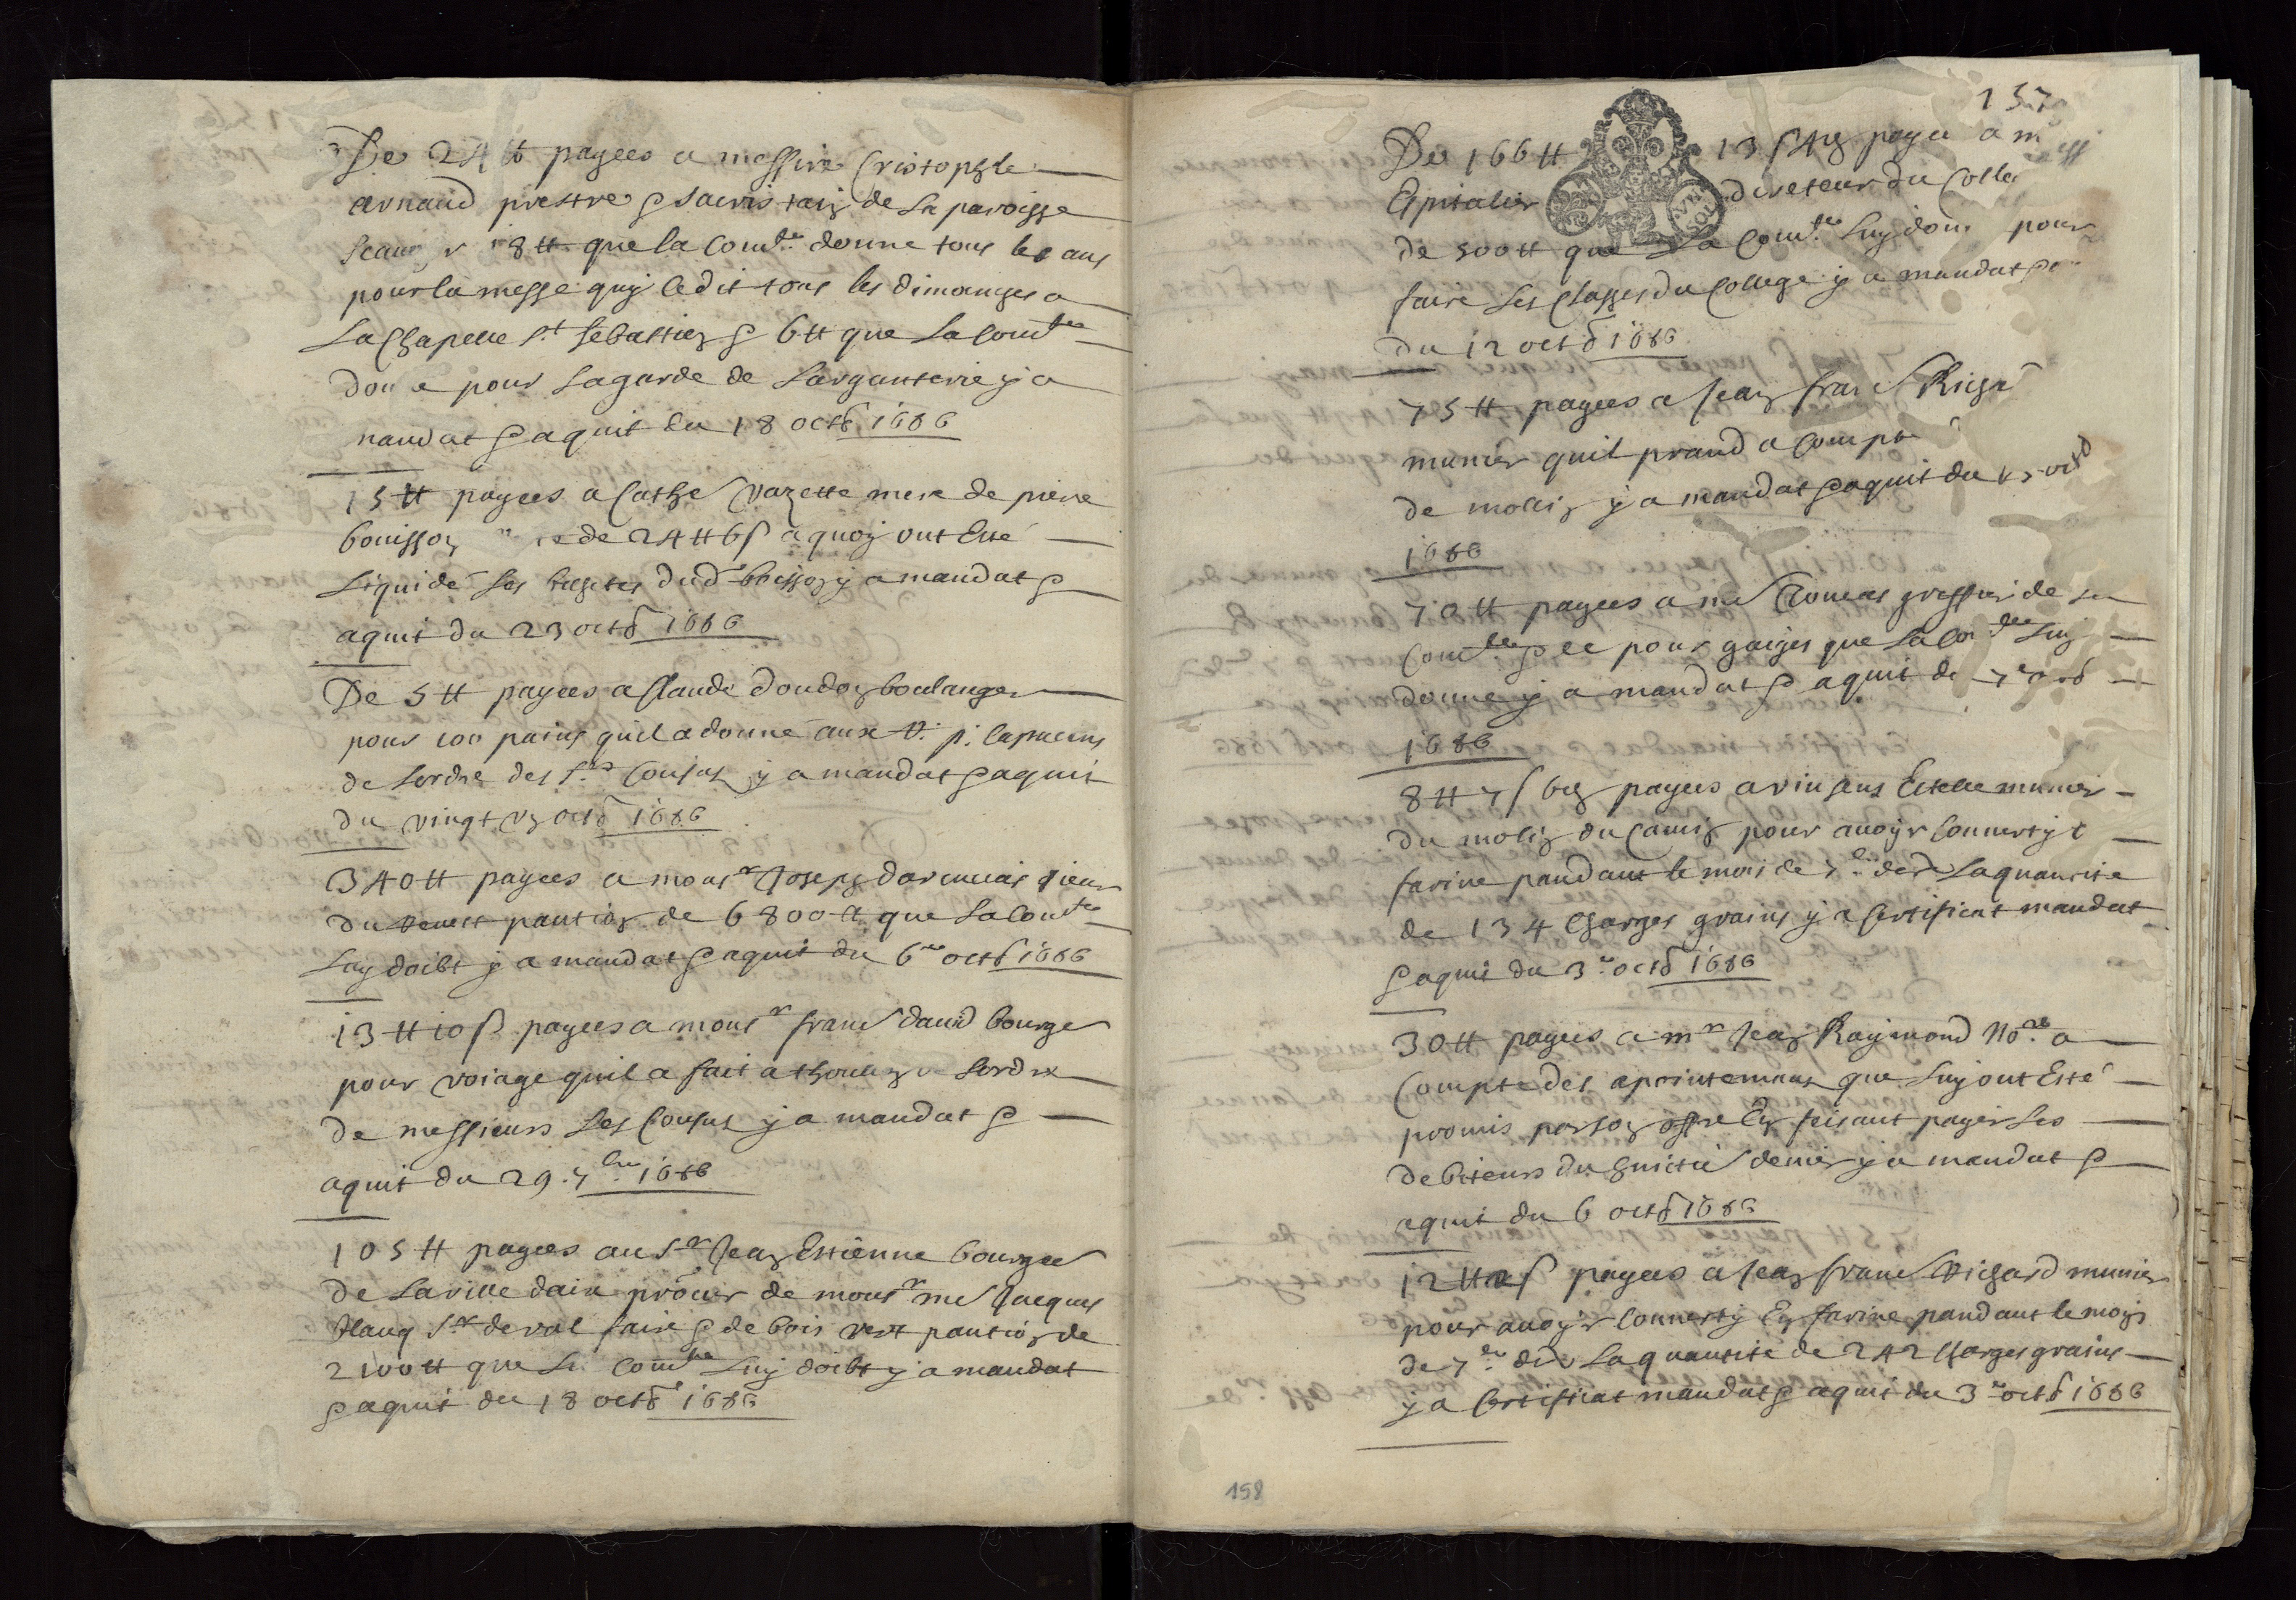 De 24 lt payees a messire Cristophle
arnaud prestre & sacristain de la paroisse
18 lt que la Com.te donne tous les ans
pour la messe quy ledit tous les dimanges a
La Chapelle S.t Sebastien & 6 lt que La Com.te
don e pour Lagarde de Larganterie y a
mandat & aquit du 18 octb 1686
15 lt payees a Cathe Vazette mere de piere
bouisson de 24 lt 6 s a quoy ont Esté
Liquidé les dud boisson y a mandat &
aquit du 23 octb 1686
De 5 lt payees a Claude doudon boulanger
pour 100 pains quil a donné aux R. p. Capucins
de Lordre des S.rs Consuls y a mandat & aquit
du vingt un octb 1686
340 lt payees a mons.r Joseph darcucias sieur
du Revest pantion de 6800 lt que La Com.te
Luy doibt y a mandat & aquit du 6.e octb 1686
13 lt 10 s payees a mons.r franc david bourge
pour voiage quil a fait a thoulon de Lordre
de messieurs Les Consuls y a mandat &
aquit du 29. 7.bre 1686
105 lt payees au S.r Jean Estienne bourgee
de La ville daix procur de mons.r me Jacques
S.r de val faire & de bois vert pantion de
2100 lt que La Com.te Luy doibt y a mandat
& aquit du 18 octb 1686
157
De 166 lt 13 s 4 d payee a m
Epitalier direteur du Colle
de 500 lt que La Com.te Luy don pour
faire Les Classes du College y a mandat &
du 12 octb 1686
75 lt payees a Jean franc Richa
munier quil prand a Compte
de molin y a mandat & aquit du octb
1686
70 lt payees a me Thomas greffier de La
Com.te & ce pour gaiges que La Com.te Luy
donne y a mandat & aquit du 7.e octb
1686
8 lt 7 s 6 d payees a vinsens Estelle munier
du molin du Camin pour avoyr Converty En
farine pandant le mois de 7.bre der La quantite
de 134 Charges grains y a Certificat mandat
& aquit du 3.e octb 1686
30 lt payees a m.r Jean Raymond No.re a
Compte des apointemans que Luy ont Esté
promis par son offre En feisant payer Les
debiteurs du huictie denier y a mandat &
aquit du 6 octb 1686
12 lt 2 s payees a Jean franc Richard munier
pour avoyr Converty En farine pandant le moys
de 7.bre der La quantite de 242 Charges grains
y a Certificat mandat & aquit du 3.e octb 1686
158